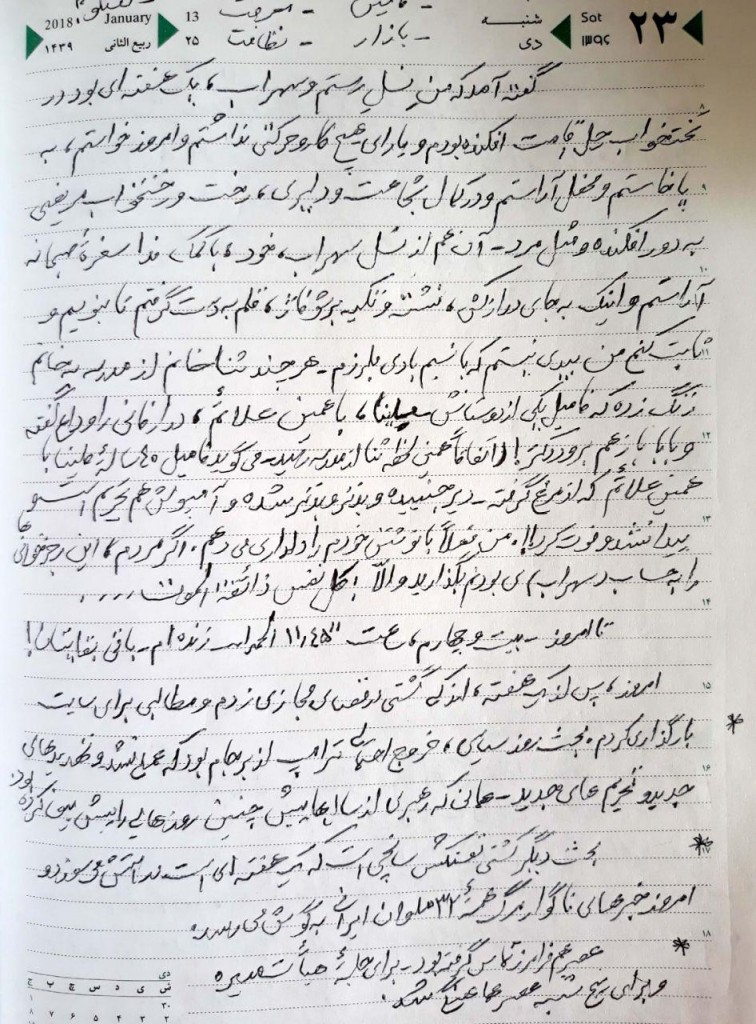 2018 January 13 شنبه Sat ۲۳
۱۴۳۹ ربیع الثانی ۲۵ - نظافت - بازار دی ۱۳۹۶
گفته آمد که من نسل رستم و سهراب، یک هفته ای بود در
تختخواب رحل اقامت افکنده بودم و یارای هیچ کار و حرکتی نداشتم و امروز خواستم، به
پا خاستم و محفل آراستم و در کمال شجاعت و دلیری، رخت و رختخواب مریضی
به دور افکنده و مثل مرد - آن هم از نسل سهراب، خود، با کمک فدا سفرهٔ صبحانه
آراستم و اینک به جای درازکش، نشسته و تکیه بر شوفاژ، قلم به دست گرفتم تا بنویسم و
ثابت کنم من بیدی نیستم که با نسیم بادی بلرزم - هر چند ثنا خانم از مدرسه به خانم
زنگ زده که فامیل یکی از دوستانش، با همین علائم، دار فانی را وداع گفته
و بابا بازهم برو دکتر!! (اتفاقاً همین لحظه ثنا از مدرسه رسید - می گوید فامیل ۴۵ سالهٔ با
همین علائم که از مرغ گرفته - زیر جنبیده و بدتر و بدتر شده و آمپولش هم تحریم است و
پیدا نشد و فوت کرد!!). من فعلاً با نوشتن خودم را دلداری می دهم. اگر مردم، این رجزخوانی
را به حساب سهرابی بودنم بگذارید والّا! کل نفس ذائقة الموت . . . .
تا امروز - بیست و چهارم، ساعت ۱۱:۴۵ الحمدلله زنده ام - باقی بقایتان!
امروز، پس از یک هفته، اندکی گشتی در فضای مجازی زدم و مطالبی برای سایت
* بارگذاری کردم. بحث روز سیاسی، خروج احتمالی ترامپ از برجام بود که عملی نشد و تهدیدهای
جدید و تحریم های جدید - همانی که رهبری از سالها پیش چنین روزهایی را پیش بینی کرده بود.
* بحث دیگر کشتی نفتکش سانچی است که یک هفته ای است در آتش می سوزد و
امروز خبرهای ناگوار مرگ همهٔ ۳۲ ملوان ایرانی به گوش می رسد.
* عصر هم فرامرز تماس گرفته بود - برای جلسهٔ هیأت
و برای پنج شنبه عصر هماهنگ شد.
دی
ش ی د س چ پ ج